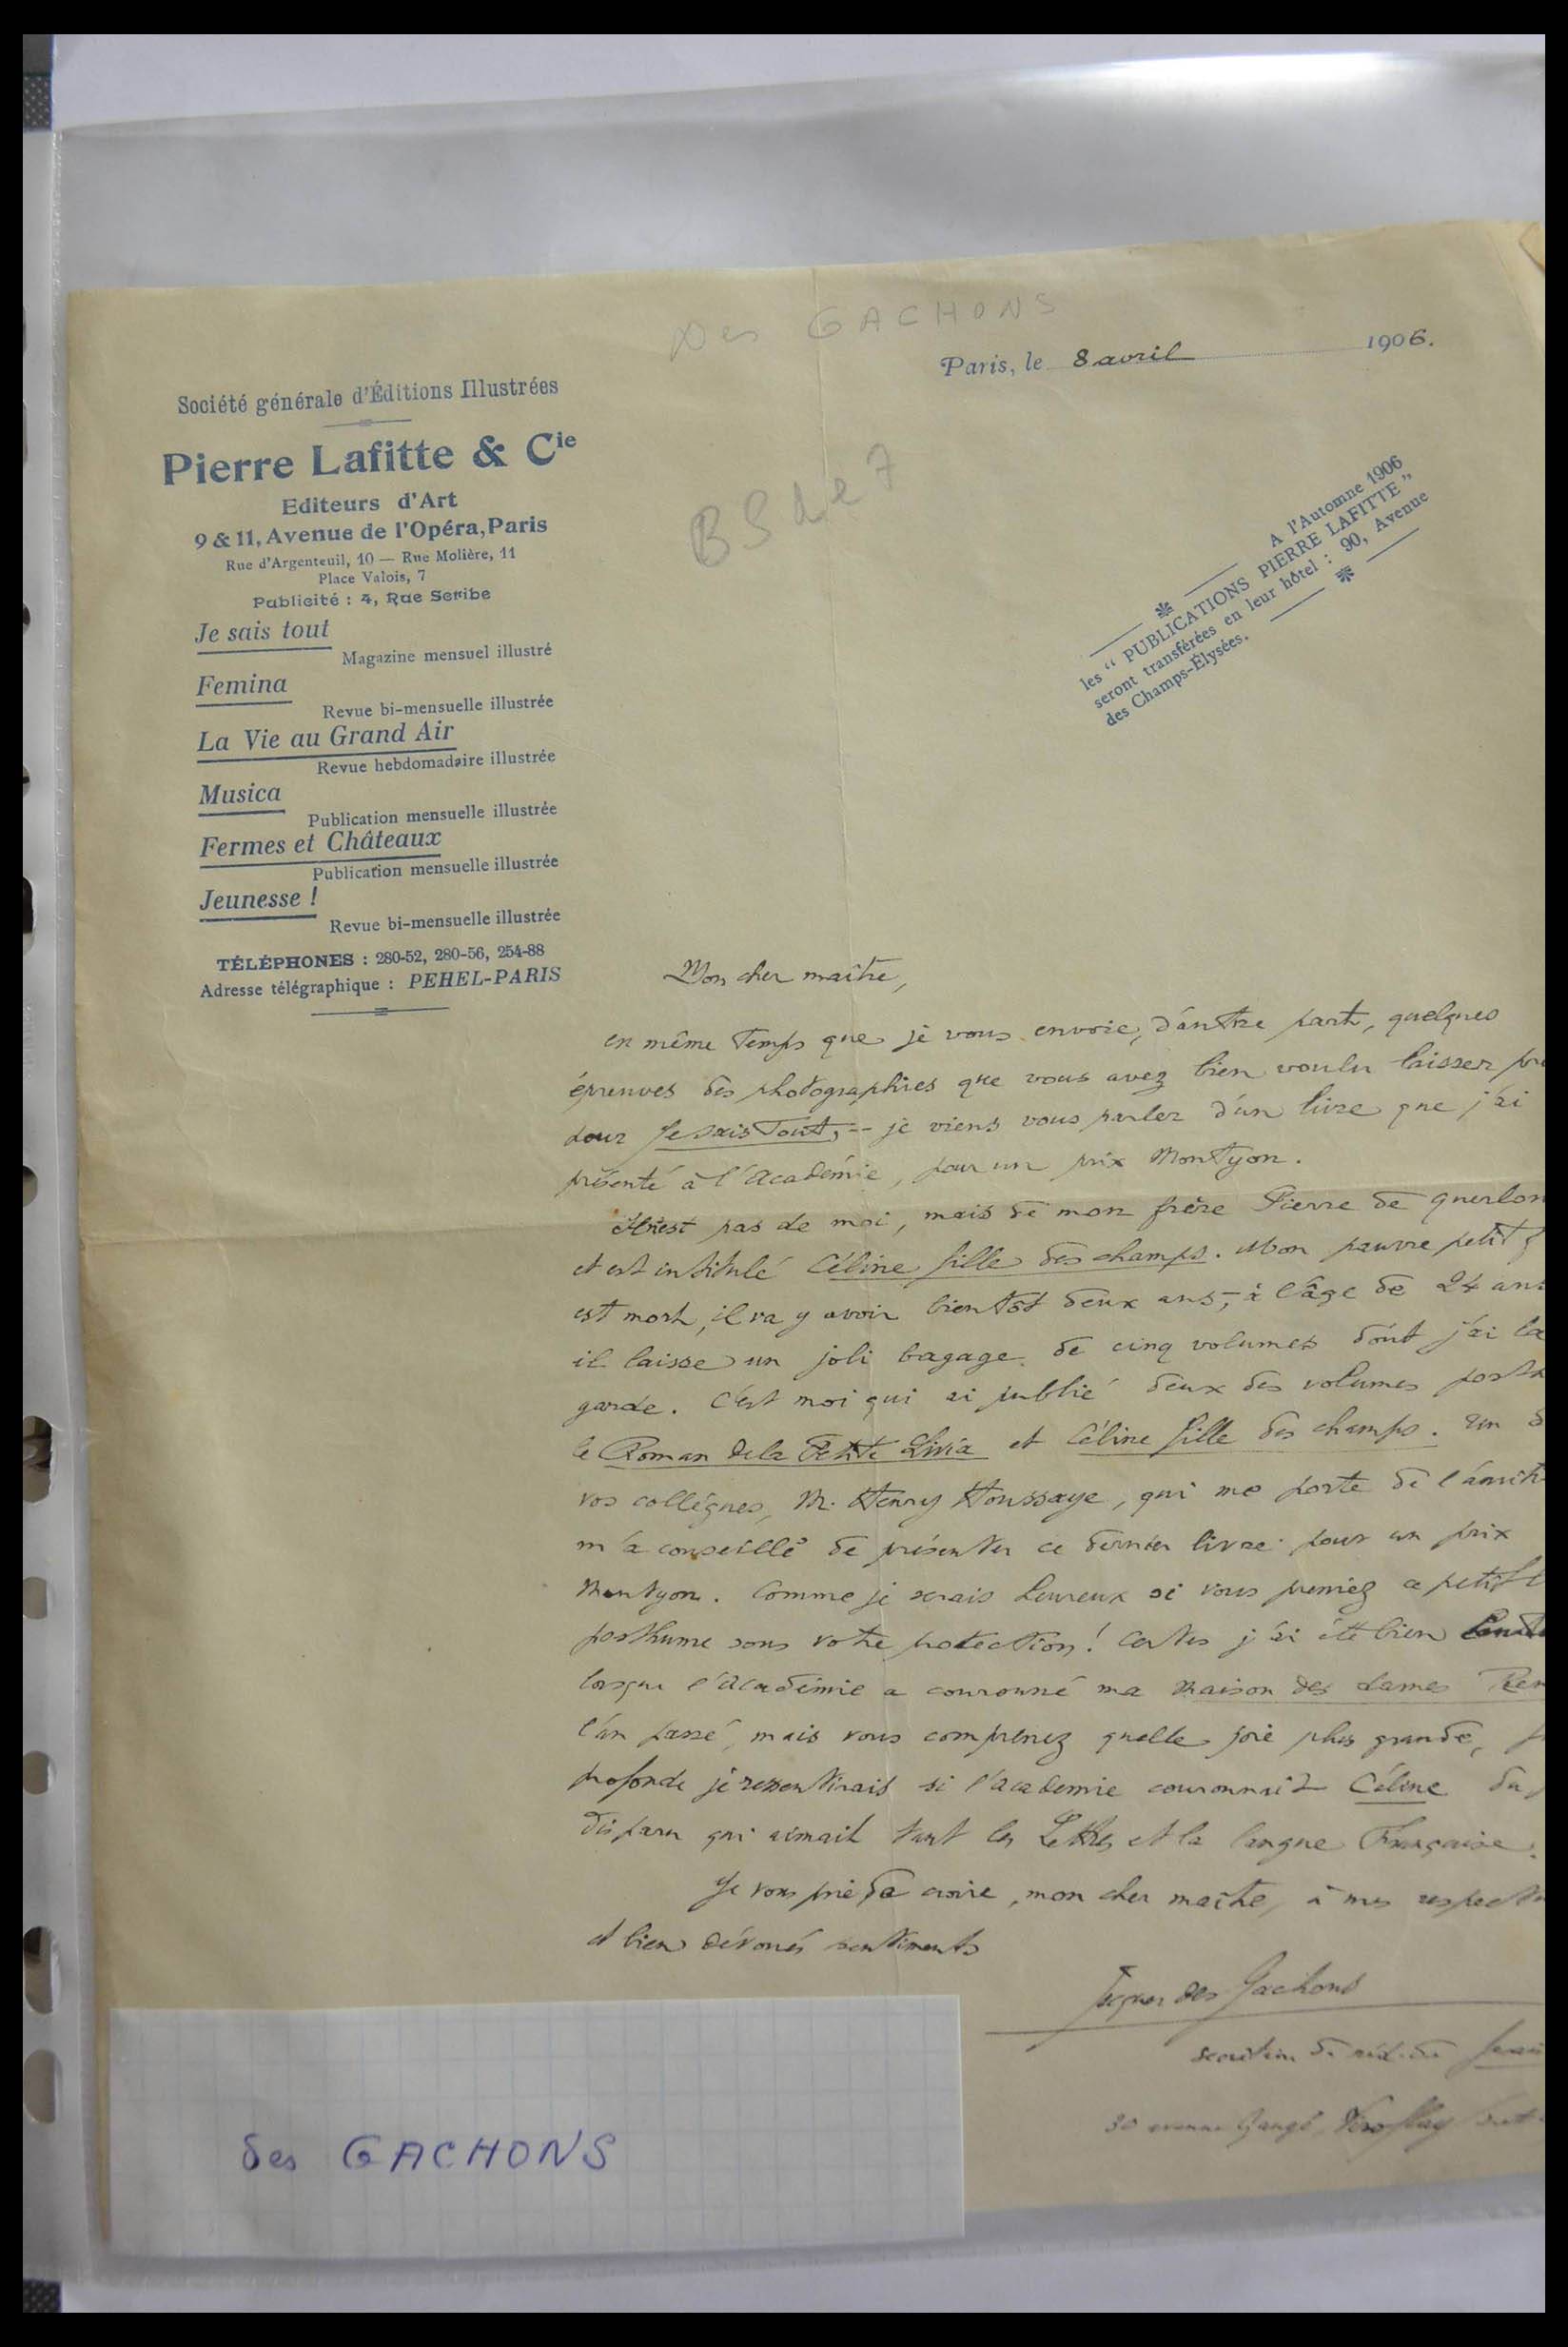 des GACHONS
Paris, le 8 avril 1906.
Société générale d'Éditions Illustrées
Pierre Lafitte & Cie
Editeurs d'Art
9 & 11, Avenue de l'Opéra, Paris
Rue d'Argenteuil, 10 — Rue Molière, 11
Place Valois, 7
Publicité : 4, Rue Scribe
Je sais tout
Magazine mensuel illustré
Femina
Revue bi-mensuelle illustrée
La Vie au Grand Air
Revue hebdomadaire illustrée
Musica
Publication mensuelle illustrée
Fermes et Châteaux
Publication mensuelle illustrée
Jeunesse !
Revue bi-mensuelle illustrée
TÉLÉPHONES : 280-52, 280-56, 254-88
Adresse télégraphique : PEHEL-PARIS
A l'Automne 1906
les “ PUBLICATIONS PIERRE LAFITTE ”
seront transférées en leur hôtel : 90, Avenue
des Champs-Élysées.
Mon cher maître,
en même temps que je vous envoie, d'autre part, quelques
épreuves des photographies que vous avez bien voulu laisser
pour Je sais Tout, – je viens vous parler d'un livre que j'ai
présenté à l'Académie, pour un prix Montyon.
Il n'est pas de moi, mais de mon frère Pierre de Querlon
et est intitulé Céline fille des champs. Mon pauvre petit
est mort, il va y avoir bientôt deux ans, à l'âge de 24 ans
il laisse un joli bagage de cinq volumes dont j'ai la
garde. C'est moi qui ai publié deux des volumes
le Roman de la Petite Livia et Céline fille des champs. Un
vos collègues, M. Henry Houssaye, qui me porte de
m'a conseillé de présenter ce dernier livre pour un prix
Montyon. Comme je serais heureux si vous preniez ce petit
posthume sous votre protection ! Certes j'ai été bien
lorsque l'Académie a couronné ma Maison des dames
l'an passé, mais vous comprenez quelle joie plus grande,
profonde je ressentirais si l'académie couronnait Céline du
disparu qui aimait tant les Lettres et la langue Française.
Je vous prie de croire, mon cher maître, à mes
et bien dévoués sentiments
Jacques des Gachons
secrétaire de réd. de
30 avenue Gaugé, Viroflay
des GACHONS